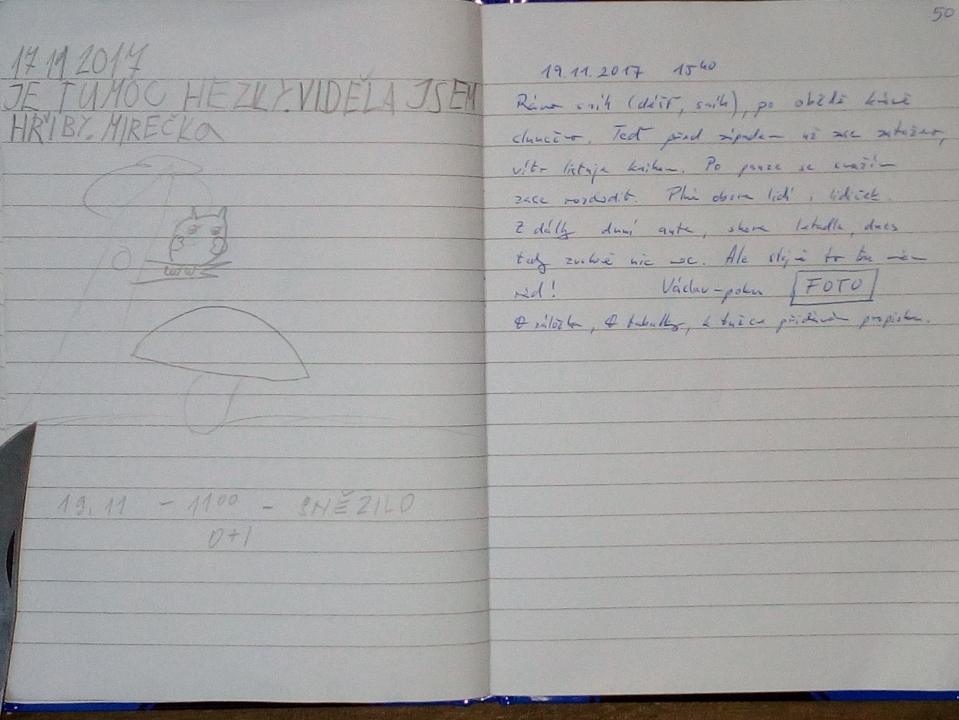 17 11 2017
JE TU MOC HEZKY. VIDĚLA JSEM
HŘIBY. MIREČKA
19.11 - 11⁰⁰ - SNĚŽILO
D+I
50
19.11.2017 15⁴⁰
Ráno sníh (déšť, sníh), po obědě krásně
slunečno. Teď před západem už zase zataženo,
vítr listuje knihou. Po pauze se snažím
zase rozchodit. Plná obora lidí i lidiček.
Z dálky duní auta, shora letadla, dnes
tedy zvěře nic moc. Ale stejně to tu mám
rád! Václav- FOTO
záložka, tabulky, k tužce přidávám propisku.